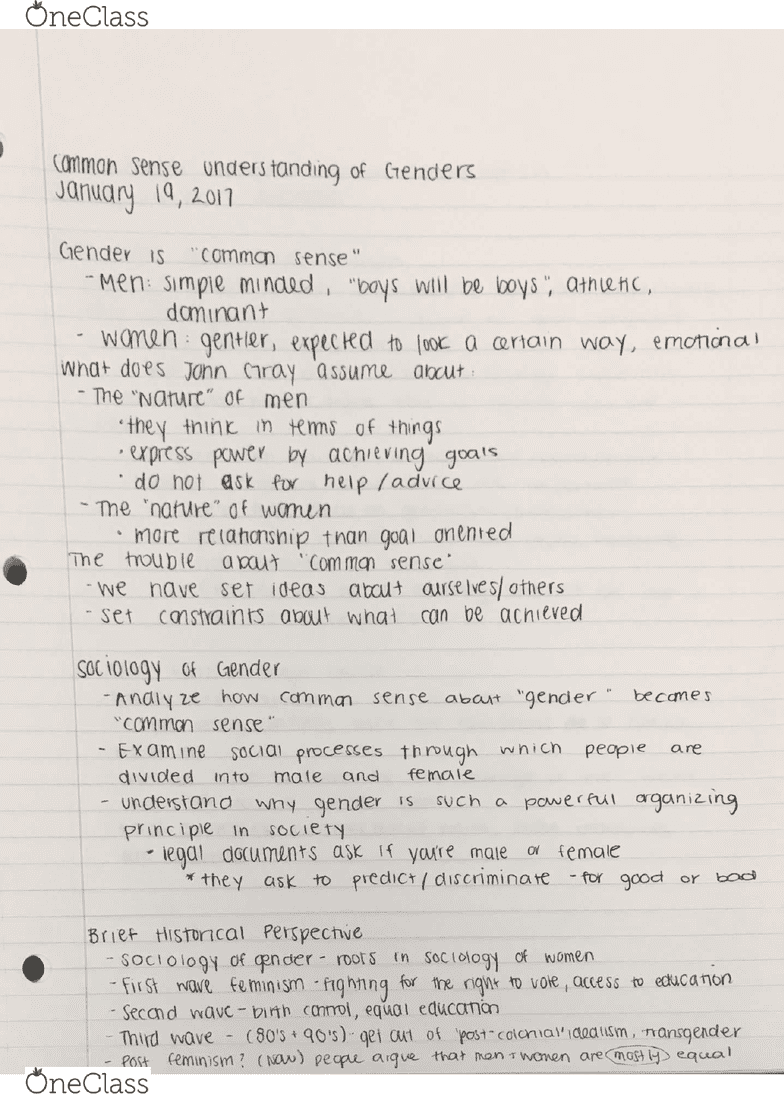 OneClass
Common Sense understanding of Genders
January 19, 2017
Gender is "common sense"
- Men: simple minded, "boys will be boys", athletic,
dominant
- women: gentler, expected to look a certain way, emotional
What does John Gray assume about:
- The "Nature" of men
• they think in terms of things
• express power by achieving goals
• do not ask for help/advice
- The "nature" of women
• more relationship than goal oriented
The trouble about "common sense"
- we have set ideas about ourselves/others
- set constraints about what can be achieved
Sociology of Gender
- Analyze how common sense about "gender" becomes
"common sense"
- Examine social processes through which people are
divided into male and female
- understand why gender is such a powerful organizing
principle in society
• legal documents ask if you're male or female
* they ask to predict/discriminate - for good or bad
Brief Historical Perspective
- sociology of gender - roots in sociology of women
- First wave feminism - fighting for the right to vote, access to education
- Second wave - birth control, equal education
- Third wave - (80's + 90's) get out of 'post-colonial' idealism, transgender
- Post feminism? (now) people argue that men + women are mostly equal
OneClass